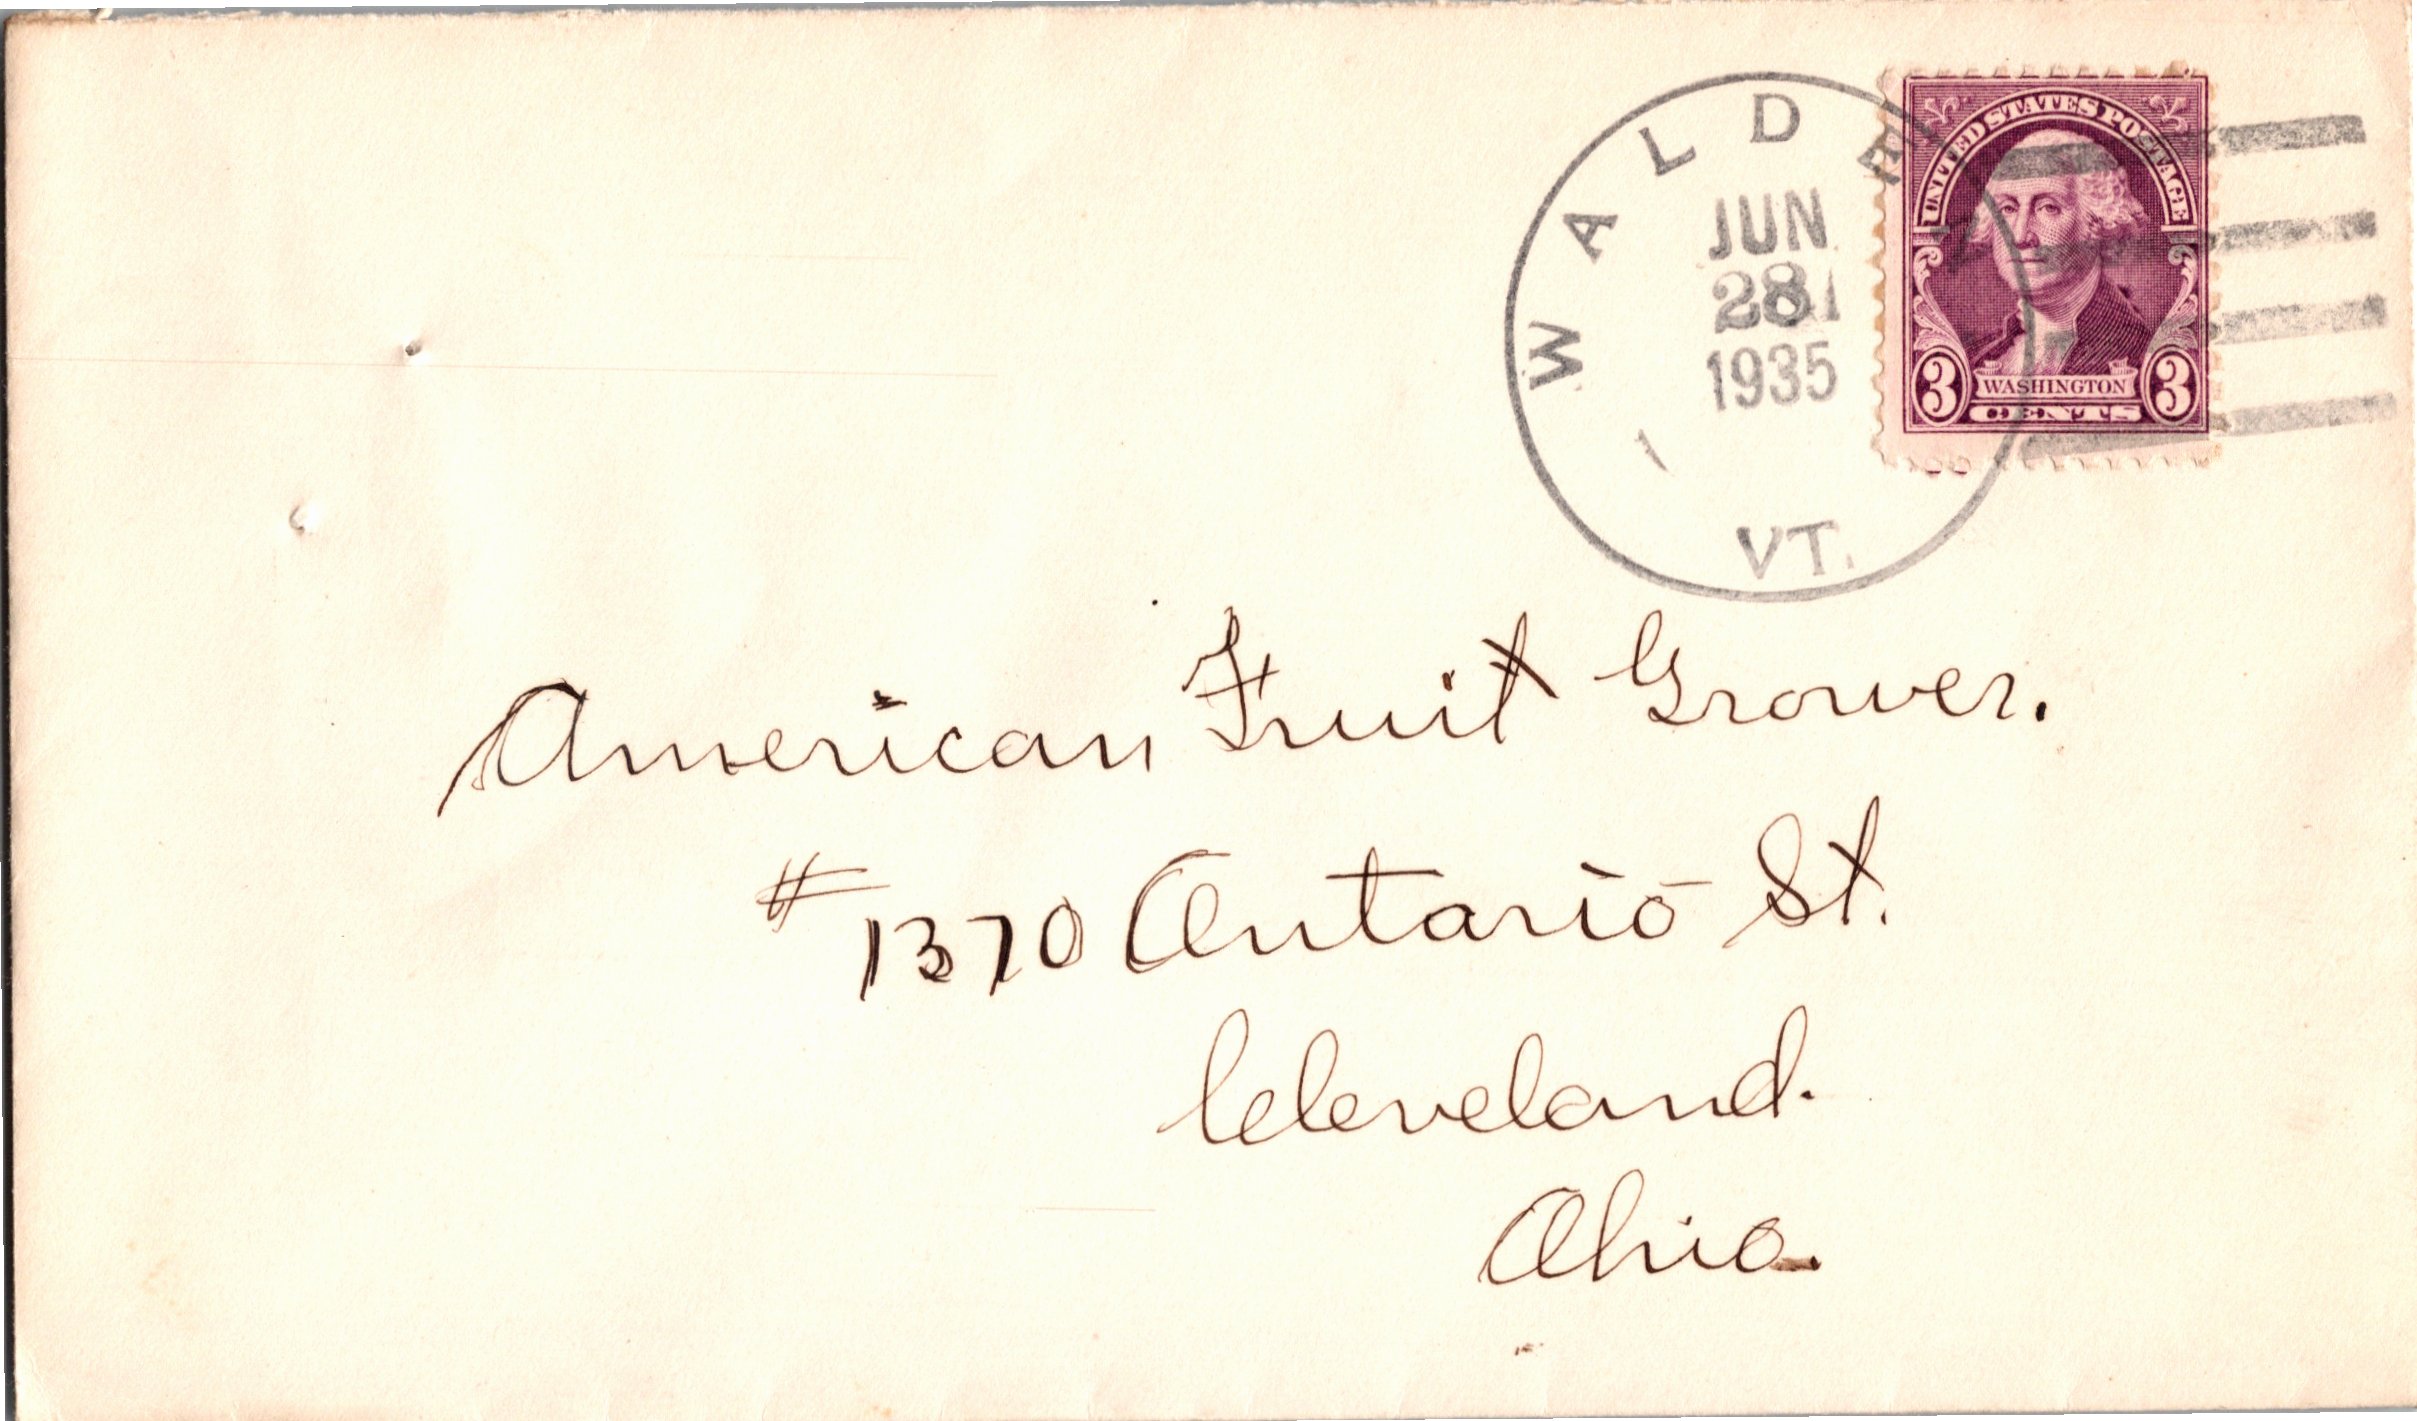 WALDEN
JUN
28
1935
VT.
UNITED STATES POSTAGE
3 WASHINGTON 3
CENTS
American Fruit Grower.
# 1370 Ontario St.
Cleveland.
Ohio.